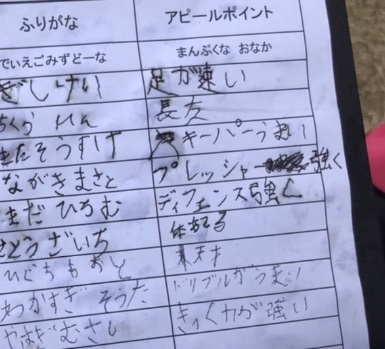 ふりがな アピールポイント
でぃえごみずどーな まんぷくな おなか
ぎしけい 足が速い
長友
きたそうすけ キーパーうまい
ながきまさと プレッシャー 強く
きだひろむ ディフェンス強く
さとうざいち 体当る
ひぐちもおと
わかすぎ そうた ドリブルがうまい
やまぎむさし きっく力が強い